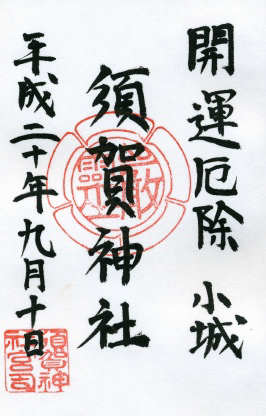 開運厄除 小城
須賀神社
平成二十年九月十日
須賀神社